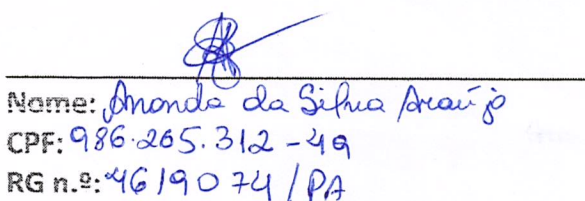 Nome: Ananda da Silva Araújo
CPF: 986.265.312-49
RG n.º: 4619074/PA